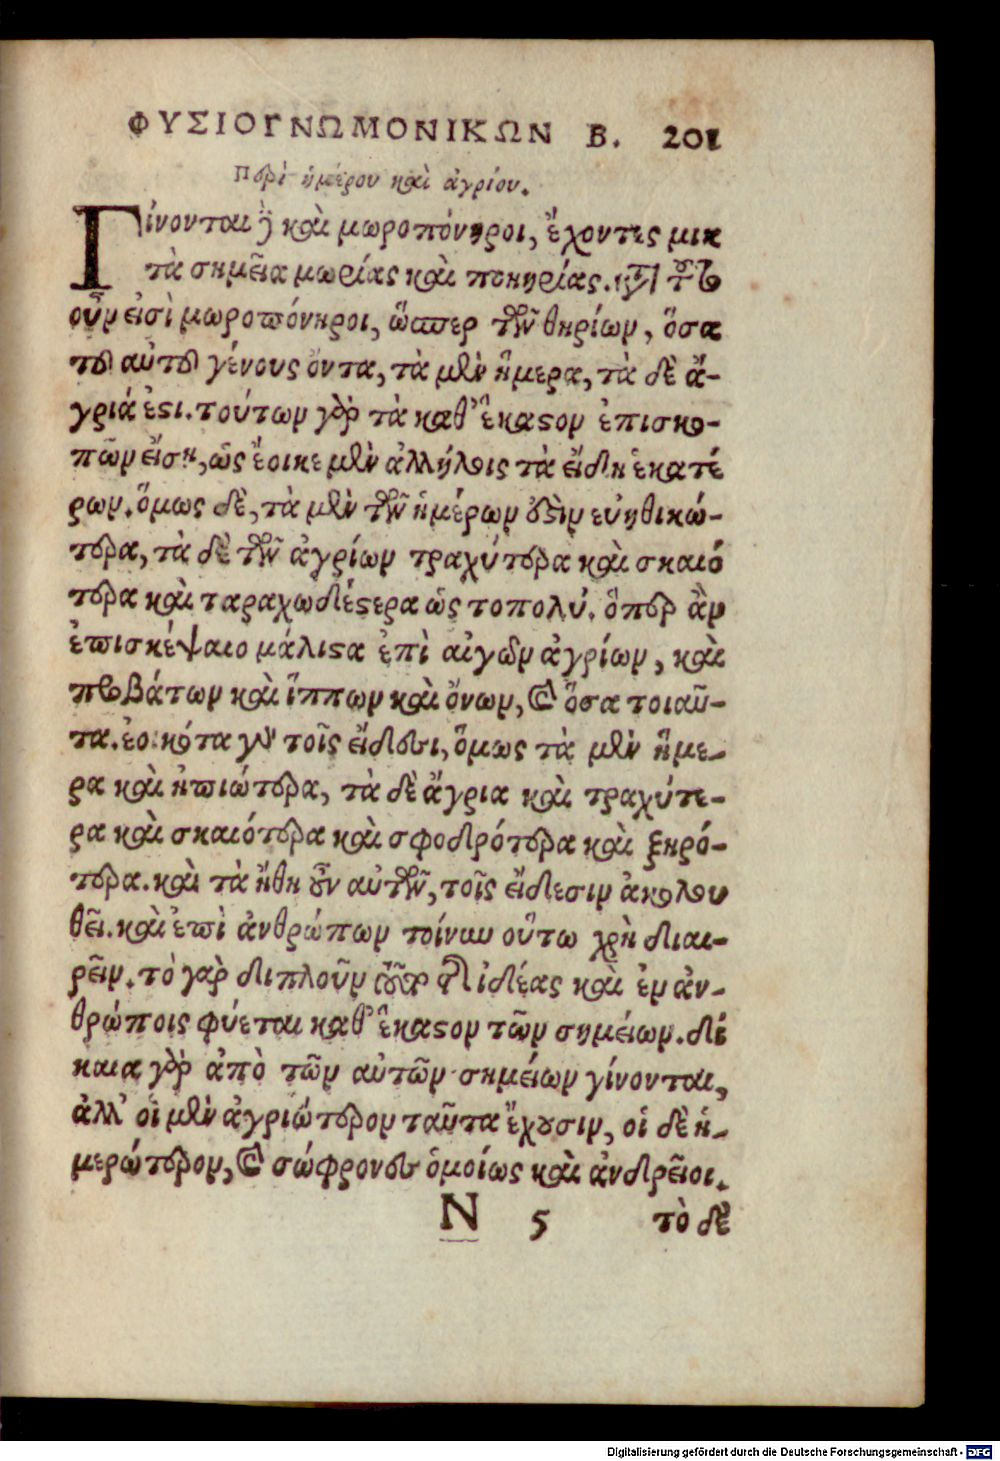 ΦΥΣΙΟΓΝΩΜΟΝΙΚΩΝ Β. 201
Περὶ ἡμέρου καὶ ἀγρίου.
Γίνονται ἢ καὶ μωροπόνηροι, ἔχοντες μικ
τὰ σημεῖα μωρίας καὶ πονηρίας.
οὖν εἰσὶ μωροπόνηροι, ὥσπερ τῶν θηρίων, ὅσα
τοῦ αὐτοῦ γένους ὄντα, τὰ μὲν ἥμερα, τὰ δὲ ἄ-
γριά ἐστι. τούτων γὰρ τὰ καθ' ἕκαστον ἐπισκο-
πῶν εἴσῃ, ὡς ἔοικε μὲν ἀλλήλοις τὰ εἴδη ἑκατέ
ρων. ὅμως δὲ, τὰ μὲν τῶν ἡμέρων ὅδειν εὐηθικώ-
τερα, τὰ δὲ τῶν ἀγρίων τραχύτερα καὶ σκαιό
τερα καὶ ταραχωδέστερα ὡς τοπολύ. ὅπερ ἂν
ἐπισκέψαιο μάλιστα ἐπὶ αἰγῶν ἀγρίων, καὶ
προβάτων καὶ ἵππων καὶ ὄνων, καὶ ὅσα τοιαῦ-
τα. ἐοικότα γὰρ τοῖς εἴδεσι, ὅμως τὰ μὲν ἥμε-
ρα καὶ ἠπιώτερα, τὰ δὲ ἄγρια καὶ τραχύτε-
ρα καὶ σκαιότερα καὶ σφοδρότερα καὶ ξηρό-
τερα. καὶ τὰ ἤθη οὖν αὐτῶν, τοῖς εἴδεσιν ἀκολου
θεῖ. καὶ ἐπὶ ἀνθρώπων τοίνυν οὕτω χρὴ διαι-
ρεῖν. τὸ γὰρ διπλοῦν τῆς ἰδέας καὶ ἐν ἀν-
θρώποις φύεται καθ' ἕκαστον τῶν σημείων. δί
καια γὰρ ἀπὸ τῶν αὐτῶν σημείων γίνονται,
ἀλλ' οἱ μὲν ἀγριώτερον ταῦτα ἔχουσιν, οἱ δὲ ἡ-
μερώτερον, καὶ σώφρονες ὁμοίως καὶ ἀνδρεῖοι.
N 5 τὸ δὲ
Digitalisierung gefördert durch die Deutsche Forschungsgemeinschaft - DFG